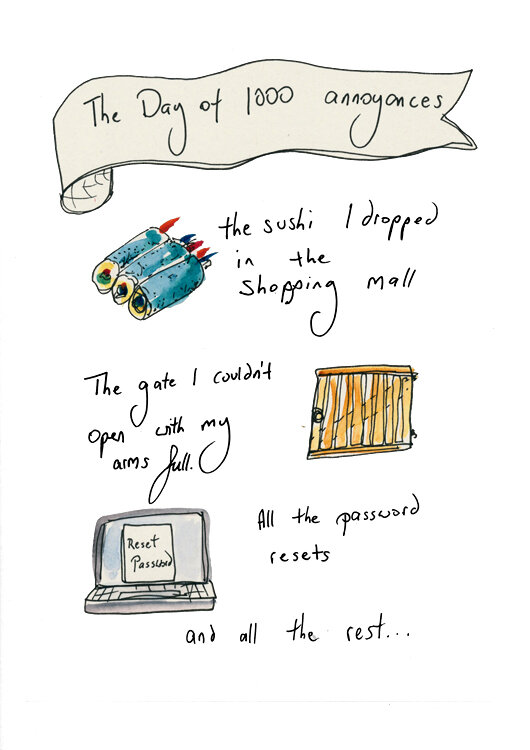 The Day of 1000 annoyances
the sushi I dropped
in the
shopping mall
The gate I couldn't
open with my
arms full.
Reset
Password
All the password
resets
and all the rest...